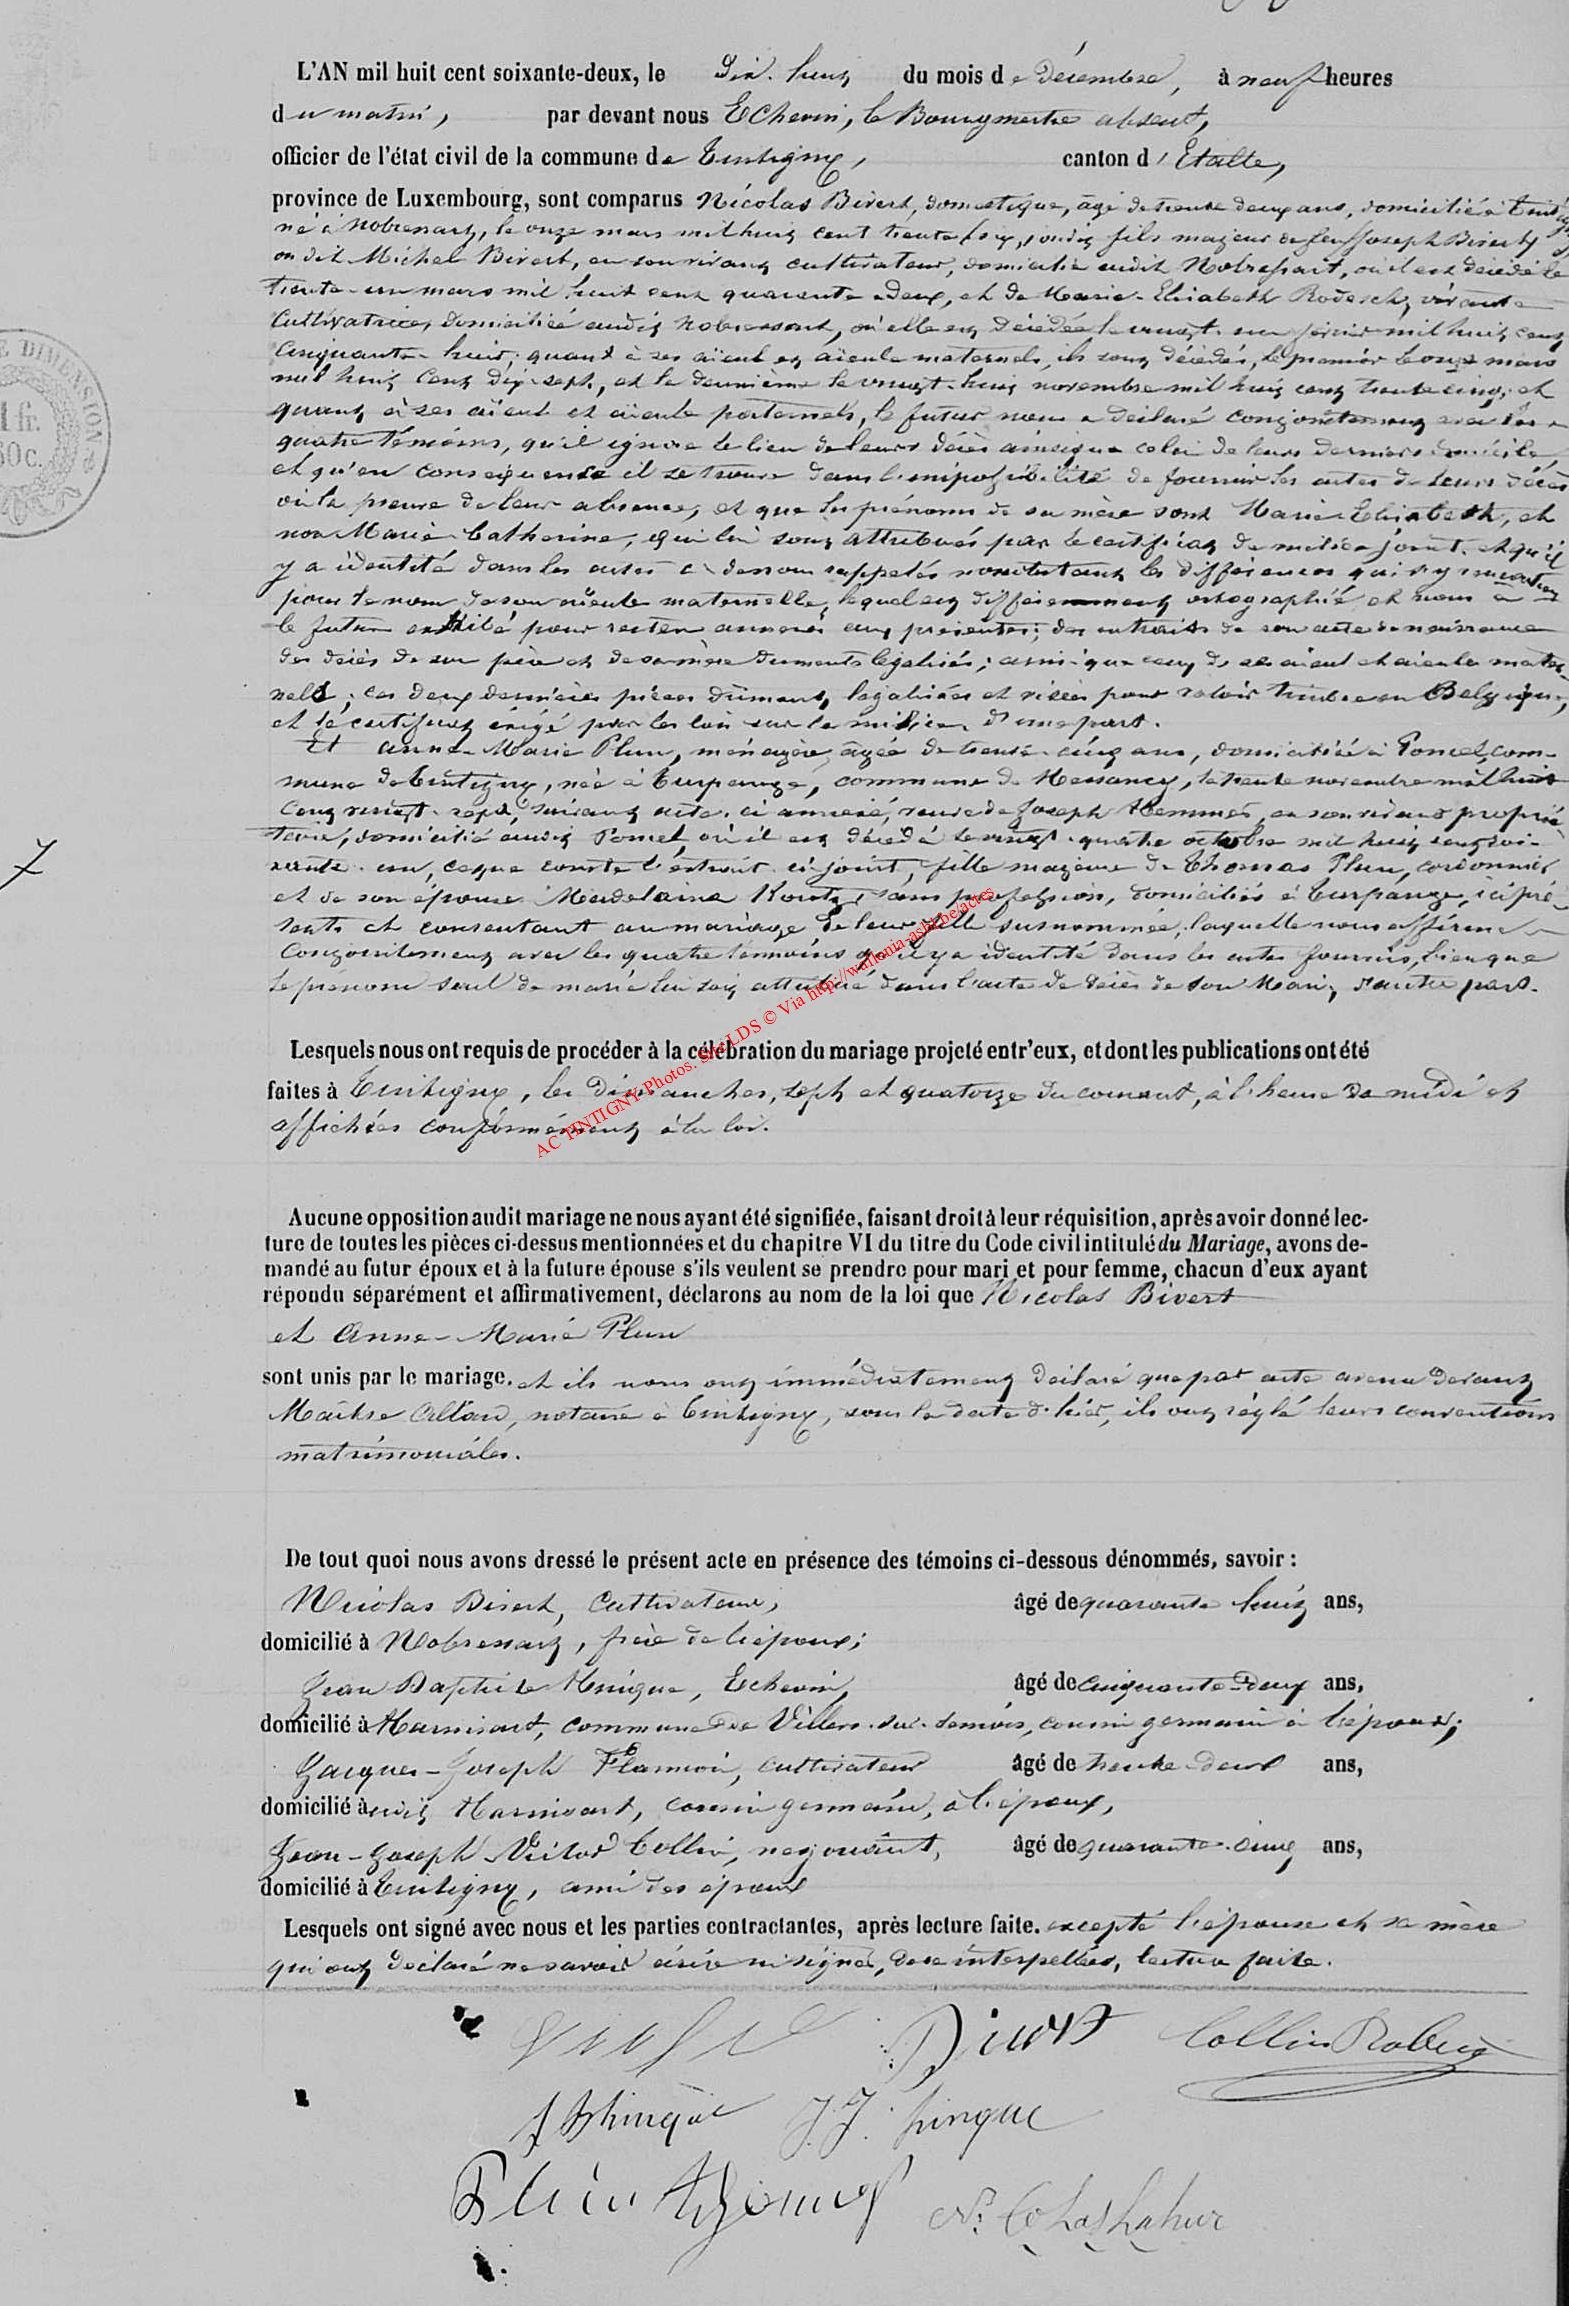 L'AN mil huit cent soixante-deux, le Dix-huit du mois de décembre, à neuf heures
du matin, par devant nous Echevin, le Bourgmestre absent,
officier de l'état civil de la commune de Tintigny, canton d'Etalle,
province de Luxembourg, sont comparus Nicolas Bivert, domestique, âgé de trente deux ans, domicilié à
né à Nobressart, le onze mars mil huit cent trente, fils majeur de feu Joseph Bivert,
ou dit Michel Bivert, en son vivant cultivateur, domicilié audit Nobressart, où il est décédé le
trente-un mars mil huit cent quarante-deux, et de Marie-Elisabeth Rodesch, vivante
Cultivatrice, domiciliée audit Nobressart, où elle est décédée le vingt-un février mil huit cent
Cinquante-huit; quant à ses aïeul et aïeule maternels, ils sont décédés, le premier le onze mars
mil huit cent dix-sept, et la deuxième le vingt-huit novembre mil huit cent trente cinq; et
quant à ses aïeul et aïeule paternels, le futur nous a déclaré conjointement avec les
quatre témoins, qu'il ignore le lieu de leurs décès ainsi que celui de leurs derniers domicile,
et qu'en conséquence il se trouve dans l'impossibilité de fournir les actes de leurs décès
ou la preuve de leur absence, et que les prénoms de sa mère sont Marie-Elisabeth, et
non Marie-Catherine, qui lui sont attribués par le certificat de milice joint. et qu'il
y a identité dans les actes ci-dessous rappelés nonobstant les différences qui s'y
pour le nom de son aïeule maternelle, lequel est différemment orthographié, et nous a
le futur exhibé pour rester annexés aux présentes; des extraits de son acte de naissance
des décès de son père et de sa mère dûment légalisés; ainsi que ceux de ses aïeul et aïeule mater-
nels; ces deux dernières pièces dûment légalisées et visées pour valoir timbre en Belgique,
et le certificat exigé par les lois sur la milice, d'une part.
Et Anne-Marie Plun, ménagère, âgée de trente-cinq ans, domiciliée à Poncel, com-
mune de Tintigny, née à Turpange, commune de Messancy, le trente novembre mil huit
cent vingt-sept, suivant acte ci annexé, veuve de Joseph Hemmer, en son vivant proprié-
taire, domicilié audit Poncel, où il est décédé le vingt-quatre octobre mil huit cent soi-
xante-un, ce que conste l'extrait ci-joint, fille majeure de Thomas Plun, cordonnier
et de son épouse Madelaine Kountz, sans profession, domiciliés à Turpange, ici pré-
sents et consentant au mariage de leur fille susnommée; laquelle nous affirme
Conjointement avec les quatre témoins qu'il y a identité dans les actes fournis, bien que
le prénom seul de marie lui soit attribué dans l'acte de décès de son Mari, d'autre part.
Lesquels nous ont requis de procéder à la célébration du mariage projeté entr'eux, et dont les publications ont été
faites à Tintigny, les dimanches, sept et quatorze du courant, à l'heure de midi et
affichées conformément à la loi.
AC TINTIGNY Photos. Sté LDS © Via http://wallonia-asbl.be/actes
Aucune opposition audit mariage ne nous ayant été signifiée, faisant droit à leur réquisition, après avoir donné lec-
ture de toutes les pièces ci-dessus mentionnées et du chapitre VI du titre du Code civil intitulé du Mariage, avons de-
mandé au futur époux et à la future épouse s'ils veulent se prendre pour mari et pour femme, chacun d'eux ayant
répondu séparément et affirmativement, déclarons au nom de la loi que Nicolas Bivert
et Anne-Marie Plun
sont unis par le mariage. et ils nous ont immédiatement déclaré que par acte avenu devant
Maître Allard, notaire à Tintigny, sous la date d'hier, ils ont réglé leurs conventions
matrimoniales.
De tout quoi nous avons dressé le présent acte en présence des témoins ci-dessous dénommés, savoir :
Nicolas Bivert, Cultivateur, âgé de quarante huit ans,
domicilié à Nobressart, frère de l'époux;
Jean Baptiste Hinque, Echevin, âgé de cinquante-deux ans,
domicilié à Harinsart, commune de Villers-sur-Semois, cousin germain à l'époux;
Jacques-Joseph cultivateur âgé de trente-deux ans,
domicilié à Harinsart, cousin germain, à l'époux,
Jean-Joseph Victor Collin, negociant, âgé de quarante-cinq ans,
domicilié à Tintigny, ami des époux
Lesquels ont signé avec nous et les parties contractantes, après lecture faite. excepté l'épouse et sa mère
qui ont déclaré ne savoir écrire ni signer, de ce interpellées, lecture faite.
Bivert Collin
J J hinque